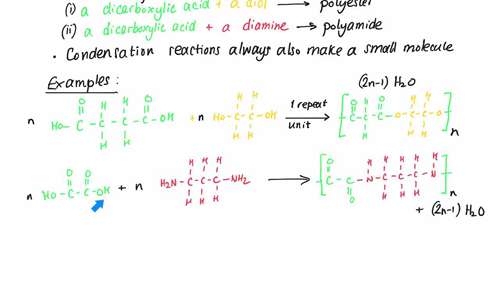 (i) a dicarboxylic acid + a diol → polyester
(ii) a dicarboxylic acid + a diamine → polyamide
· Condensation reactions always also make a small molecule
Examples:
(2n-1) H₂O
O H H O
n HO-C-C-C-C-OH + n HO-C-C-OH 1 repeat unit → [C-C-C-O-C-C-O]n
H H
O O H H H
n HO-C-C-OH + n H₂N-C-C-C-NH₂ → [C-C-N-C-C-C-N]n
H H H
+ (2n-1) H₂O